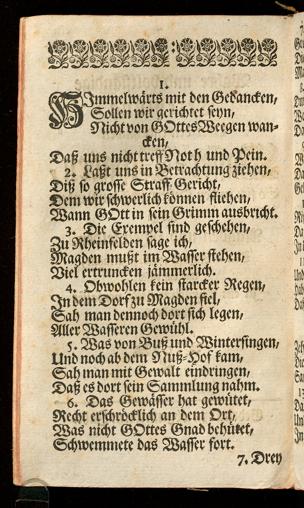 1.
HImmelwärts mit den Gedancken,
Sollen wir gerichtet seyn,
Nicht von GOttes Weegen wan-
cken,
Daß uns nicht treff Noth und Pein.
2. Laßt uns in Betrachtung ziehen,
Diß so grosse Straff Gericht,
Dem wir schwerlich können fliehen,
Wann GOtt in sein Grimm ausbricht.
3. Die Exempel sind geschehen,
Zu Rheinfelden sage ich,
Magden mußt im Wasser stehen,
Viel ertruncken jämmerlich.
4. Obwohlen kein starcker Regen,
In dem Dorf zu Magden fiel,
Sah man dennoch dort sich legen,
Aller Wasseren Gewühl.
5. Was von Buß und Wintersingen,
Und noch ab dem Nuß-Hof kam,
Sah man mit Gewalt eindringen,
Daß es dort sein Sammlung nahm.
6. Das Gewässer hat gewütet,
Recht erschröcklich an dem Ort,
Was nicht GOttes Gnad behütet,
Schwemmete das Wasser fort.
7. Drey